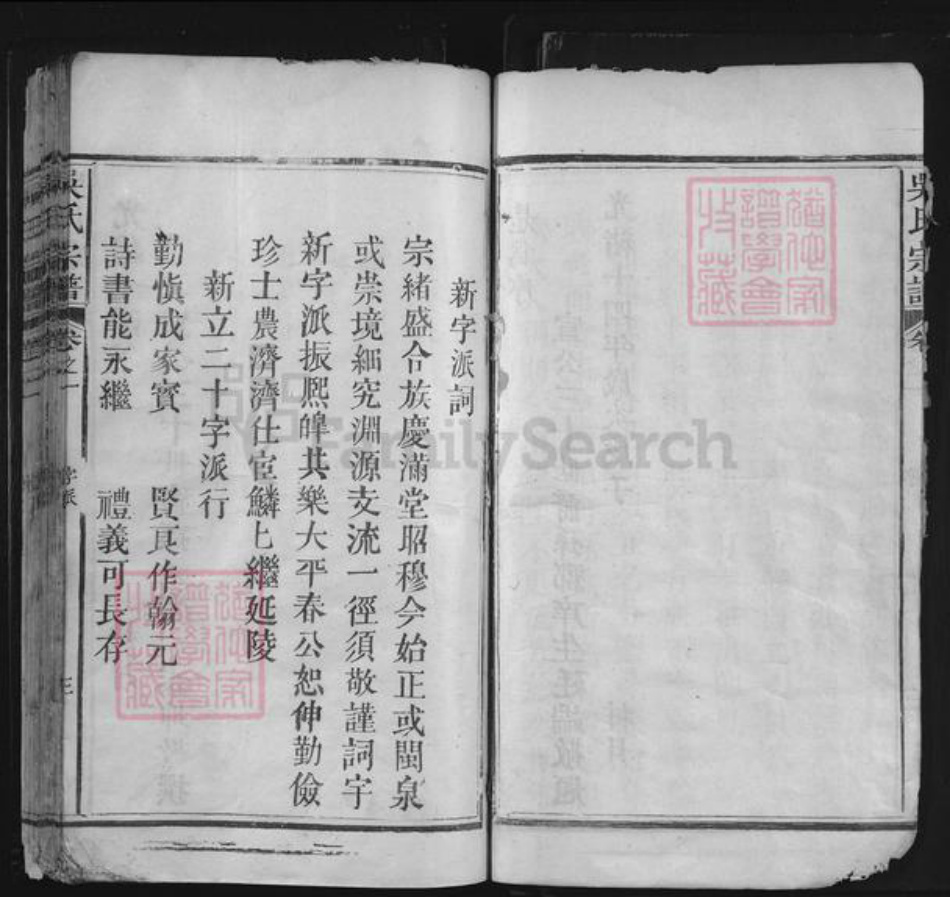 吳氏宗譜
新字派詞
宗緒盛令族慶滿堂昭穆今始正或閩泉
或崇境細究淵源支流一徑須敬謹詞宇
新字派振熈皥共樂大平春公恕伸勤儉
珍士農濟濟仕宦鱗匕繼延陵
新立二十字派行
勤愼成家寳 賢良作翰元
詩書能永繼 禮義可長存
吳氏宗譜 卷之一 字派 三
FamilySearch